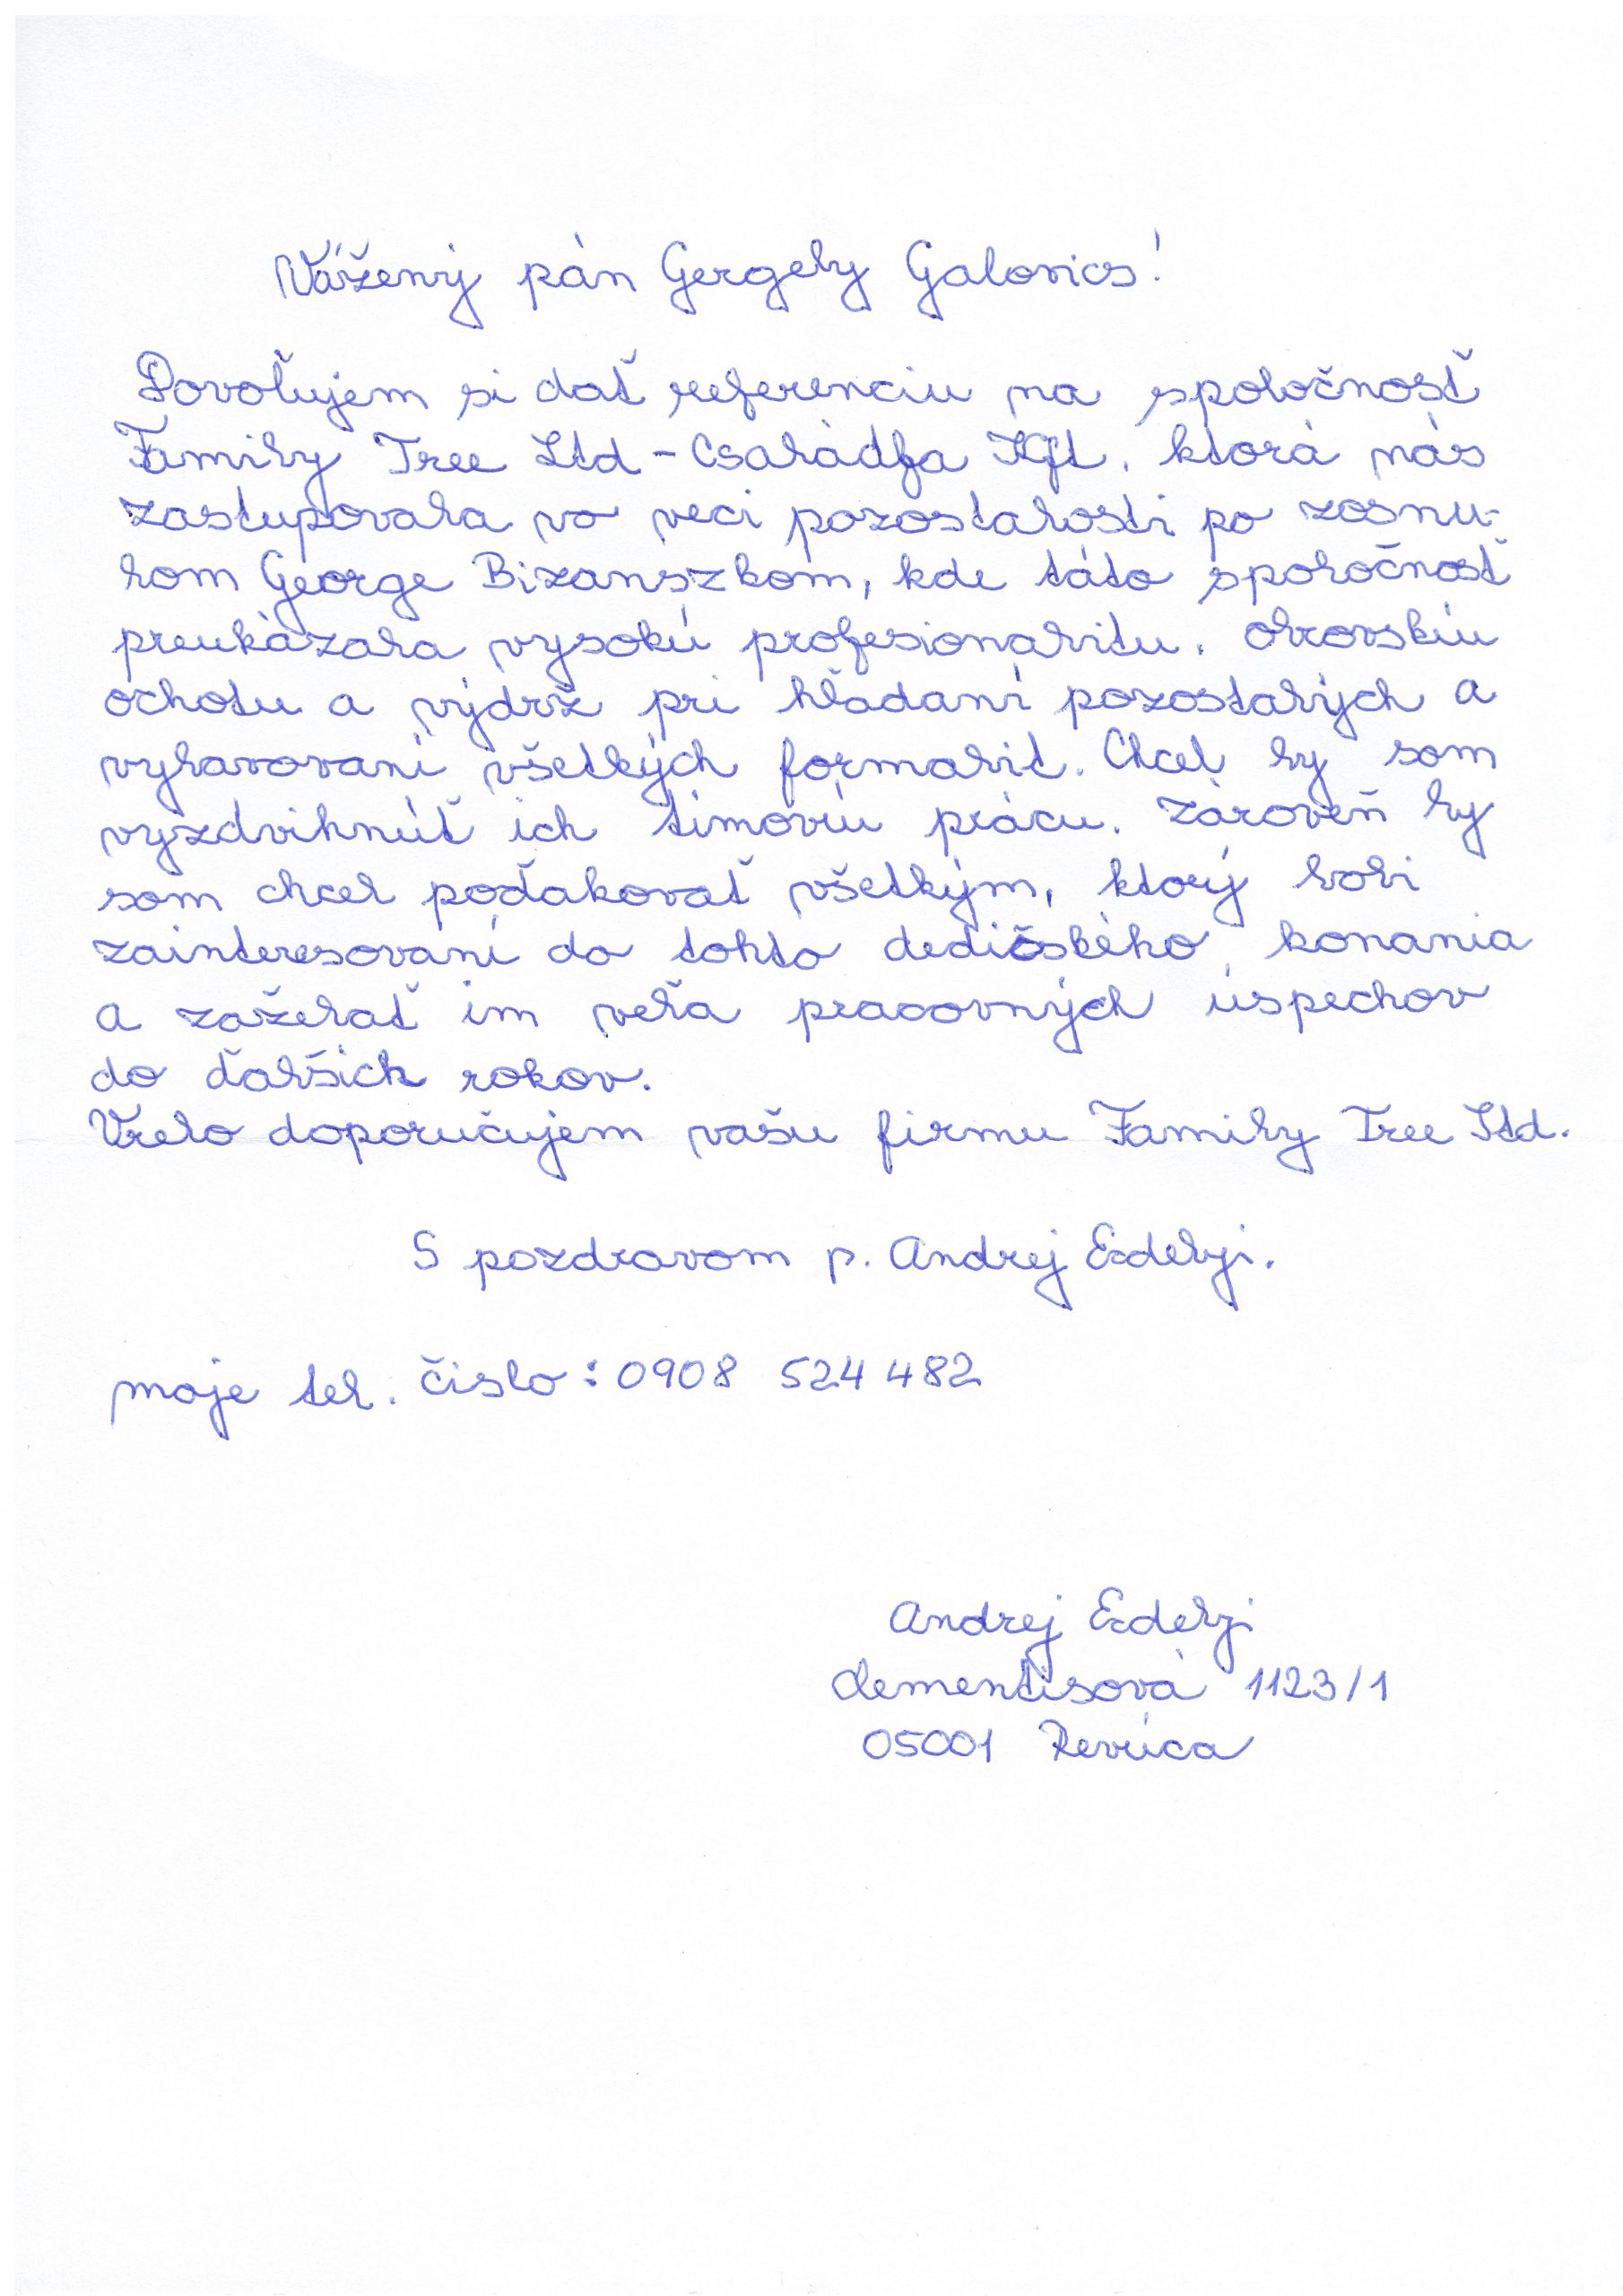 Vážený pán Gergely Galovics!
Dovoľujem si dať referenciu na spoločnosť
Family Tree Ltd - Családfa Kft. ktorá nás
zastupovala vo veci pozostalosti po zosnu-
lom George Bizanszkom, kde táto spoločnosť
preukázala vysokú profesionalitu. Obrovskú
ochotu a výdrž pri hľadaní pozostalých a
vybavovaní všetkých formalit. Chcel by som
vyzdvihnúť ich tímovú prácu. Zároveň by
som chcel poďakovať všetkým, ktorý boli
zainteresovaní do tohto dedičského konania
a zaželať im veľa pracovných úspechov
do ďalších rokov.
Vrelo doporučujem vašu firmu Family Tree Ltd.
S pozdravom p. Andrej Erdelyi.
moje tel. číslo: 0908 524 482
Andrej Erdelyi
Clementisová 1123/1
05001 Revúca